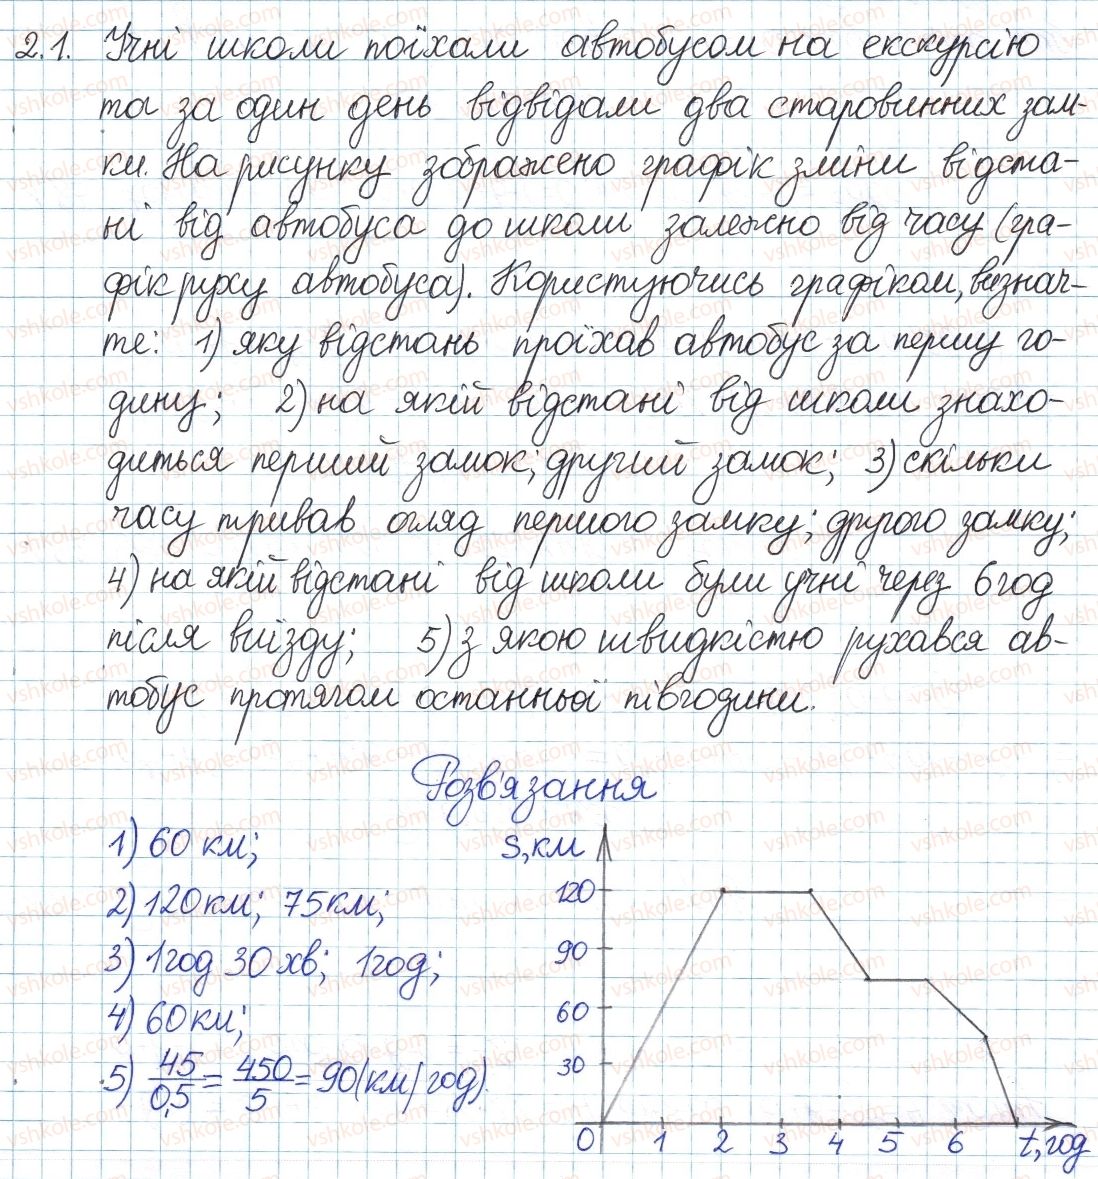 2.1. Учні школи поїхали автобусом на екскурсію
та за один день відвідали два старовинних зам-
ки. На рисунку зображено графік зміни відста-
ні від автобуса до школи залежно від часу (гра-
фік руху автобуса). Користуючись графіком, визнач-
те: 1) яку відстань проїхав автобус за першу го-
дину; 2) на якій відстані від школи знахо-
диться перший замок; другий замок; 3) скільки
часу тривав огляд першого замку; другого замку;
4) на якій відстані від школи були учні через 6 год
після виїзду; 5) з якою швидкістю рухався ав-
тобус протягом останньої півгодини.
Розв'язання
1) 60 км;
2) 120 км; 75 км;
3) 1 год 30 хв; 1 год;
4) 60 км;
5) 45/0,5 = 450/5 = 90 (км/год)
S, км
120
90
60
30
0 1 2 3 4 5 6 t, год